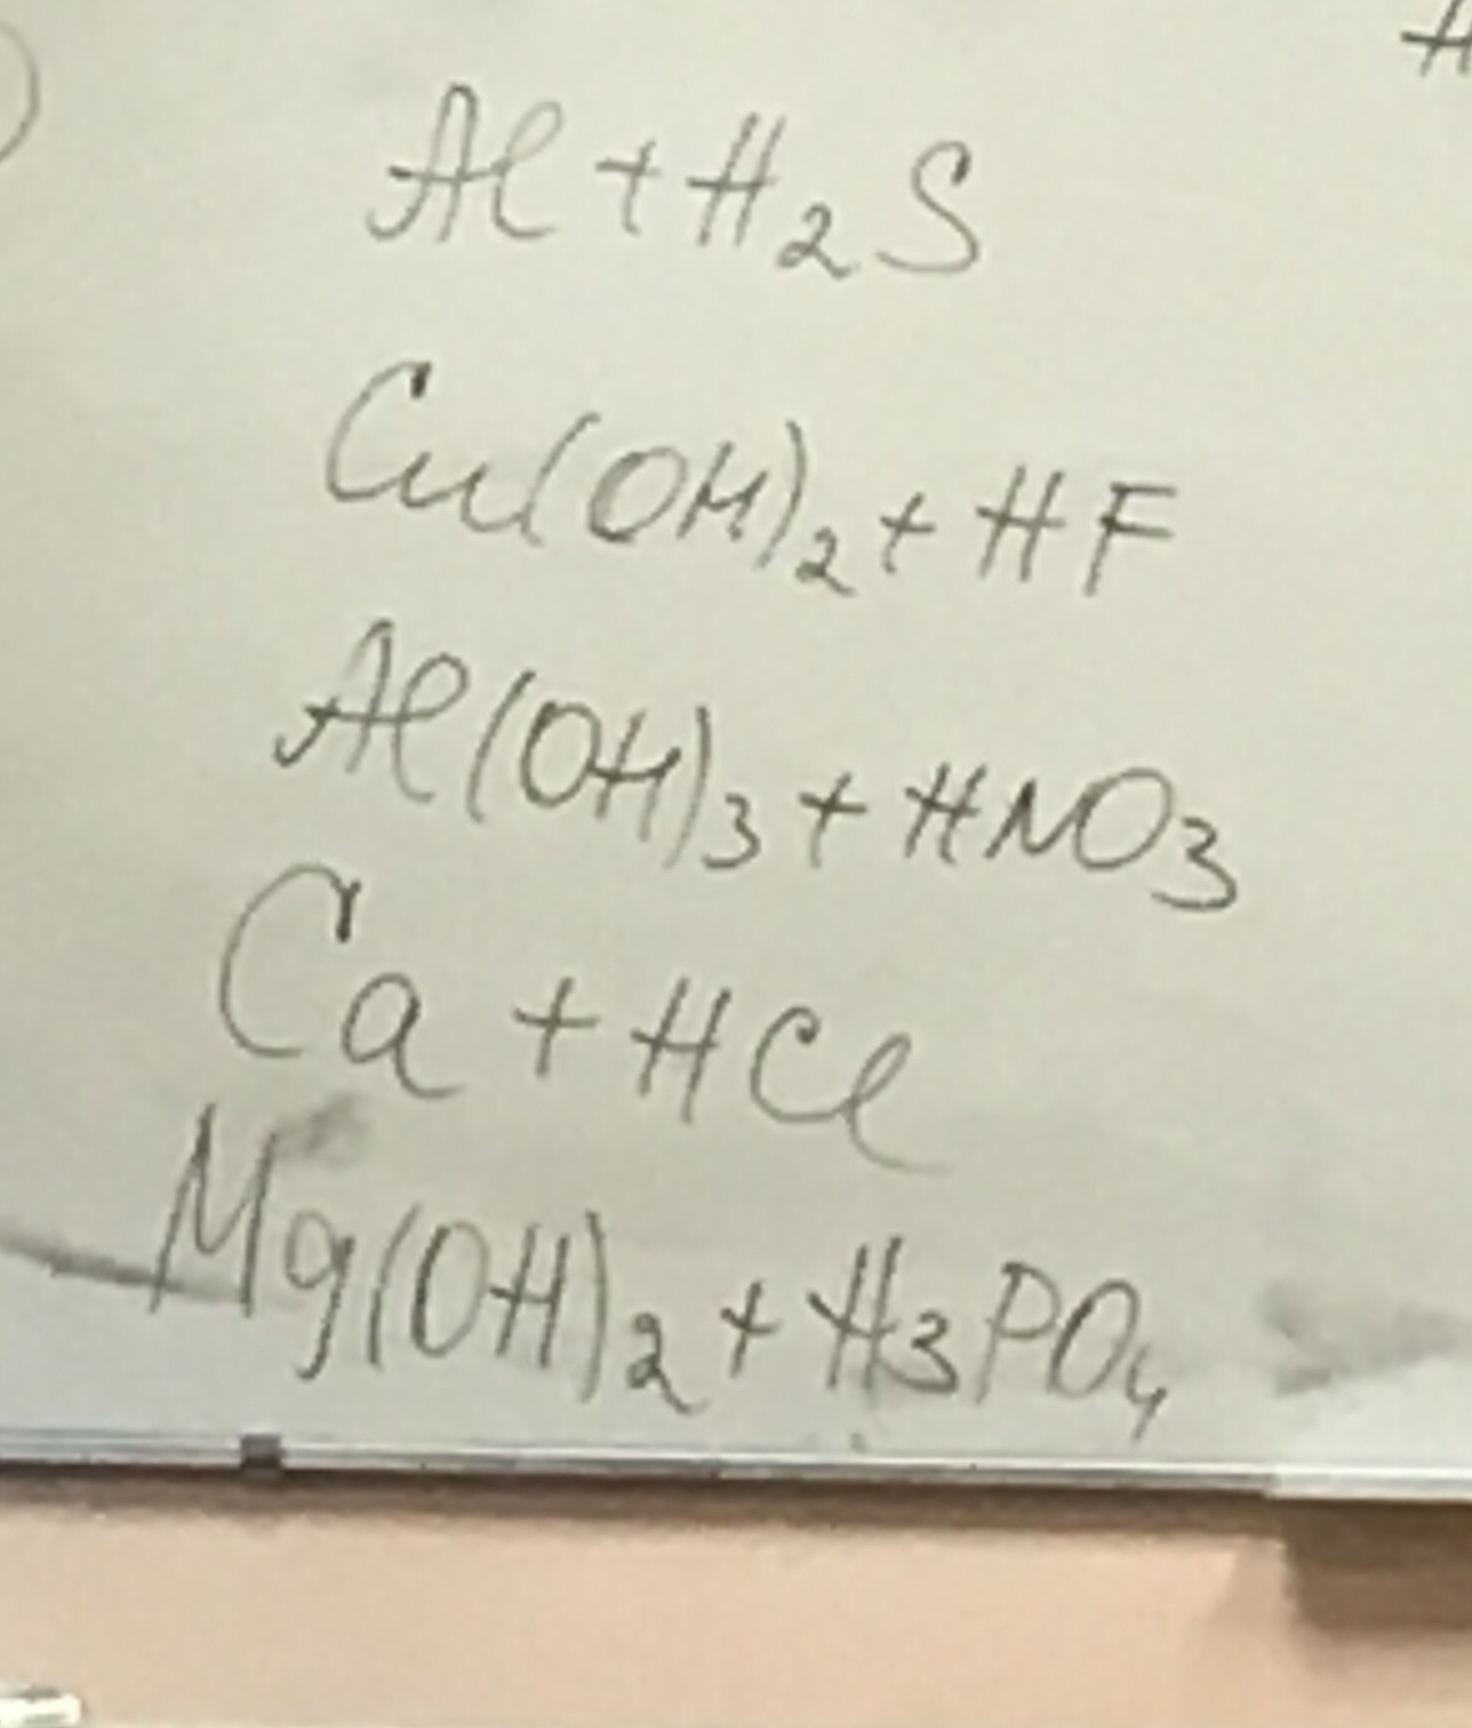 Al + H₂S
Cu(OH)₂ + HF
Al(OH)₃ + HNO₃
Ca + HCl
Mg(OH)₂ + H₃PO₄